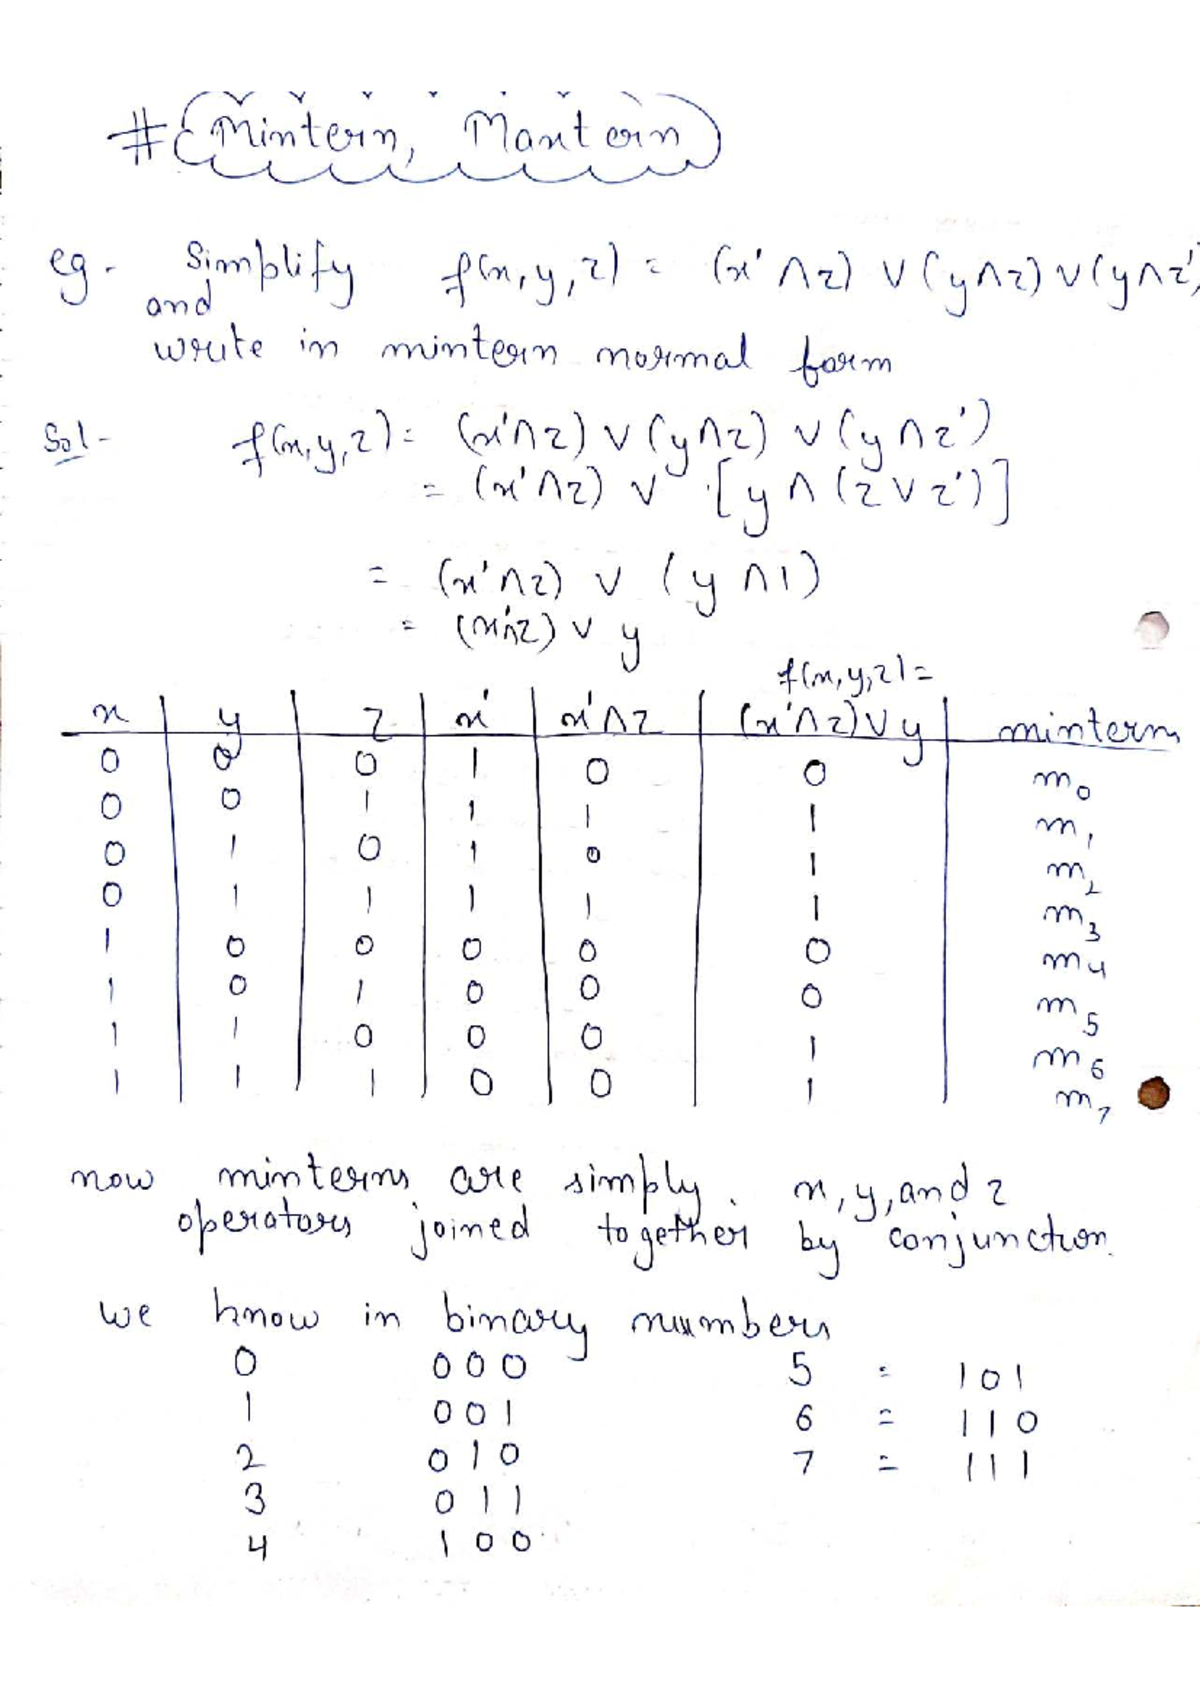 # Minterm, Maxterm
eg- Simplify f(x, y, z) = (x' ∧ z) ∨ (y ∧ z) ∨ (y ∧ z')
and
write in minterm normal form
Sol- f(x, y, z) = (x' ∧ z) ∨ (y ∧ z) ∨ (y ∧ z')
= (x' ∧ z) ∨ [y ∧ (z ∨ z')]
= (x' ∧ z) ∨ (y ∧ 1)
= (x' ∧ z) ∨ y
f(x, y, z) =
x y z x' x' ∧ z (x' ∧ z) ∨ y minterm
0 0 0 1 0 0 m0
0 0 1 1 1 1 m1
0 1 0 1 0 1 m2
0 1 1 1 1 1 m3
1 0 0 0 0 0 m4
1 0 1 0 0 0 m5
1 1 0 0 0 1 m6
1 1 1 0 0 1 m7
now minterms are simply x, y, and z
operators joined together by conjunction.
we know in binary numbers
0 000 5 = 101
1 001 6 = 110
2 010 7 = 111
3 011
4 100